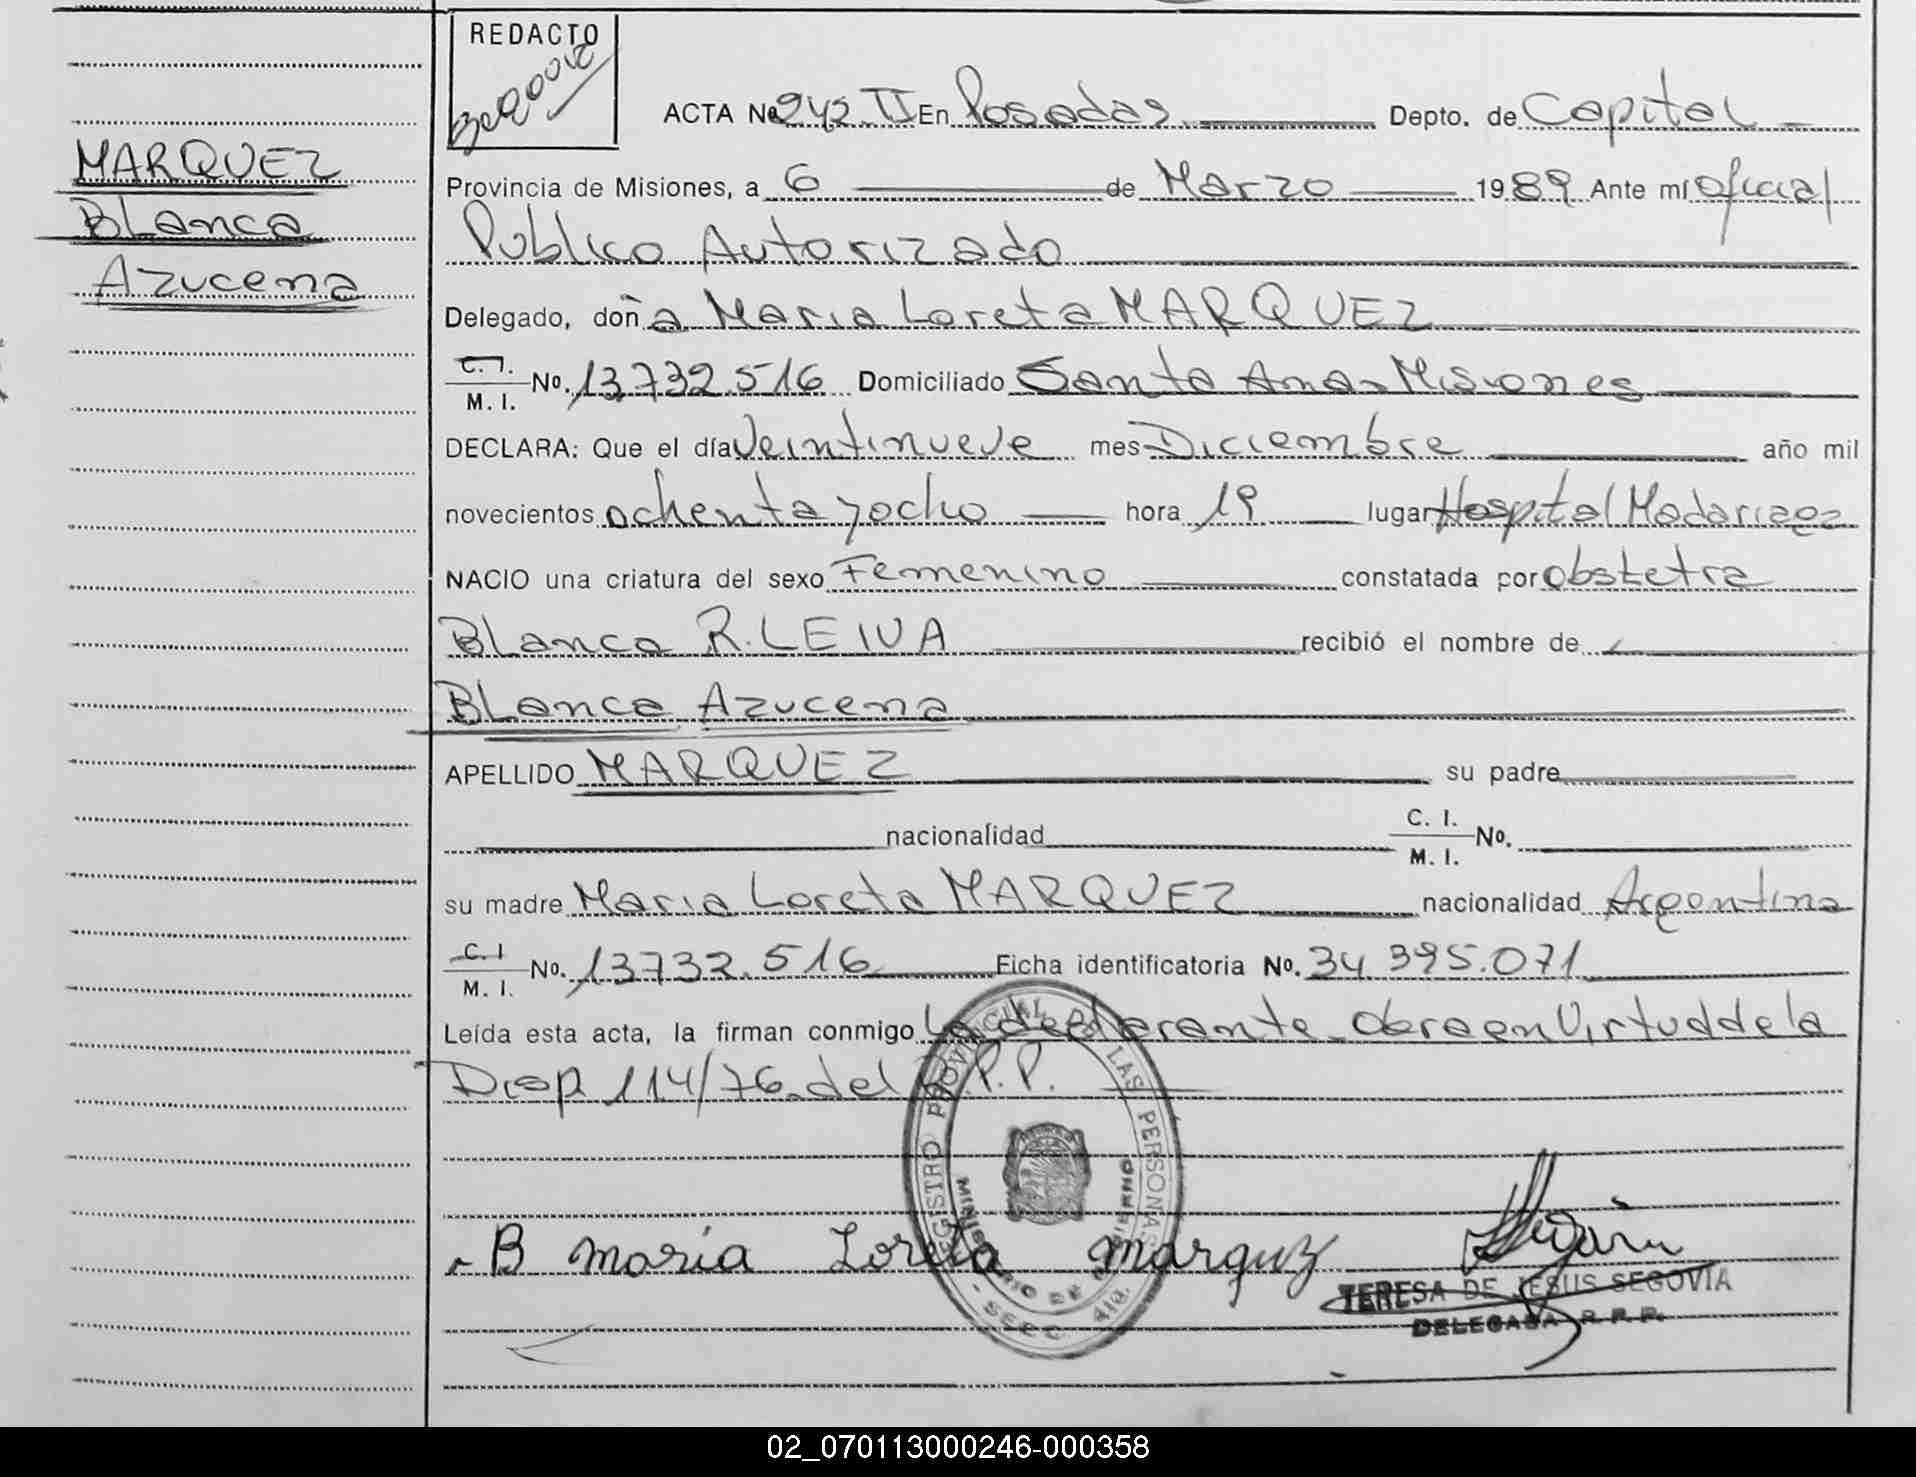 REDACTO
ACTA No 242 II En Posadas Depto. de Capital
MARQUEZ
Blanca
Azucena
Provincia de Misiones, a 6 de Marzo 1989 Ante mí oficial
Publico Autorizado
Delegado, doña Maria Loreta MARQUEZ
C. I. M. I. No. 13.732.516 Domiciliado Santa Ana - Misiones
DECLARA: Que el día Veintinueve mes Diciembre año mil
novecientos ochenta y ocho hora 19 lugar Hospital Madariaga
NACIO una criatura del sexo Femenino constatada por obstetra
Blanca R. LEIVA recibió el nombre de
Blanca Azucena
APELLIDO MARQUEZ su padre
nacionalidad C. I. M. I. No.
su madre Maria Loreta MARQUEZ nacionalidad Argentina
C. I M. I. No. 13732.516 Ficha identificatoria No. 34 395.071
Leída esta acta, la firman conmigo la declarante obra en Virtud de la
Disp 114/76 del R.P.P.
REGISTRO PROVINCIAL DE LAS PERSONAS
MINISTERIO DE GOBIERNO
B maría Loreta marquz
TERESA DE JESUS SEGOVIA
DELEGADA R. P. P.
02_070113000246-000358